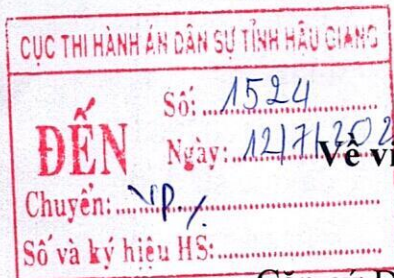 CỤC THI HÀNH ÁN DÂN SỰ TỈNH HẬU GIANG
ĐẾN
Số: 1524
Ngày: 12/7/202
Về vi
Chuyển: VP./
Số và ký hiệu HS:
Căn cứ